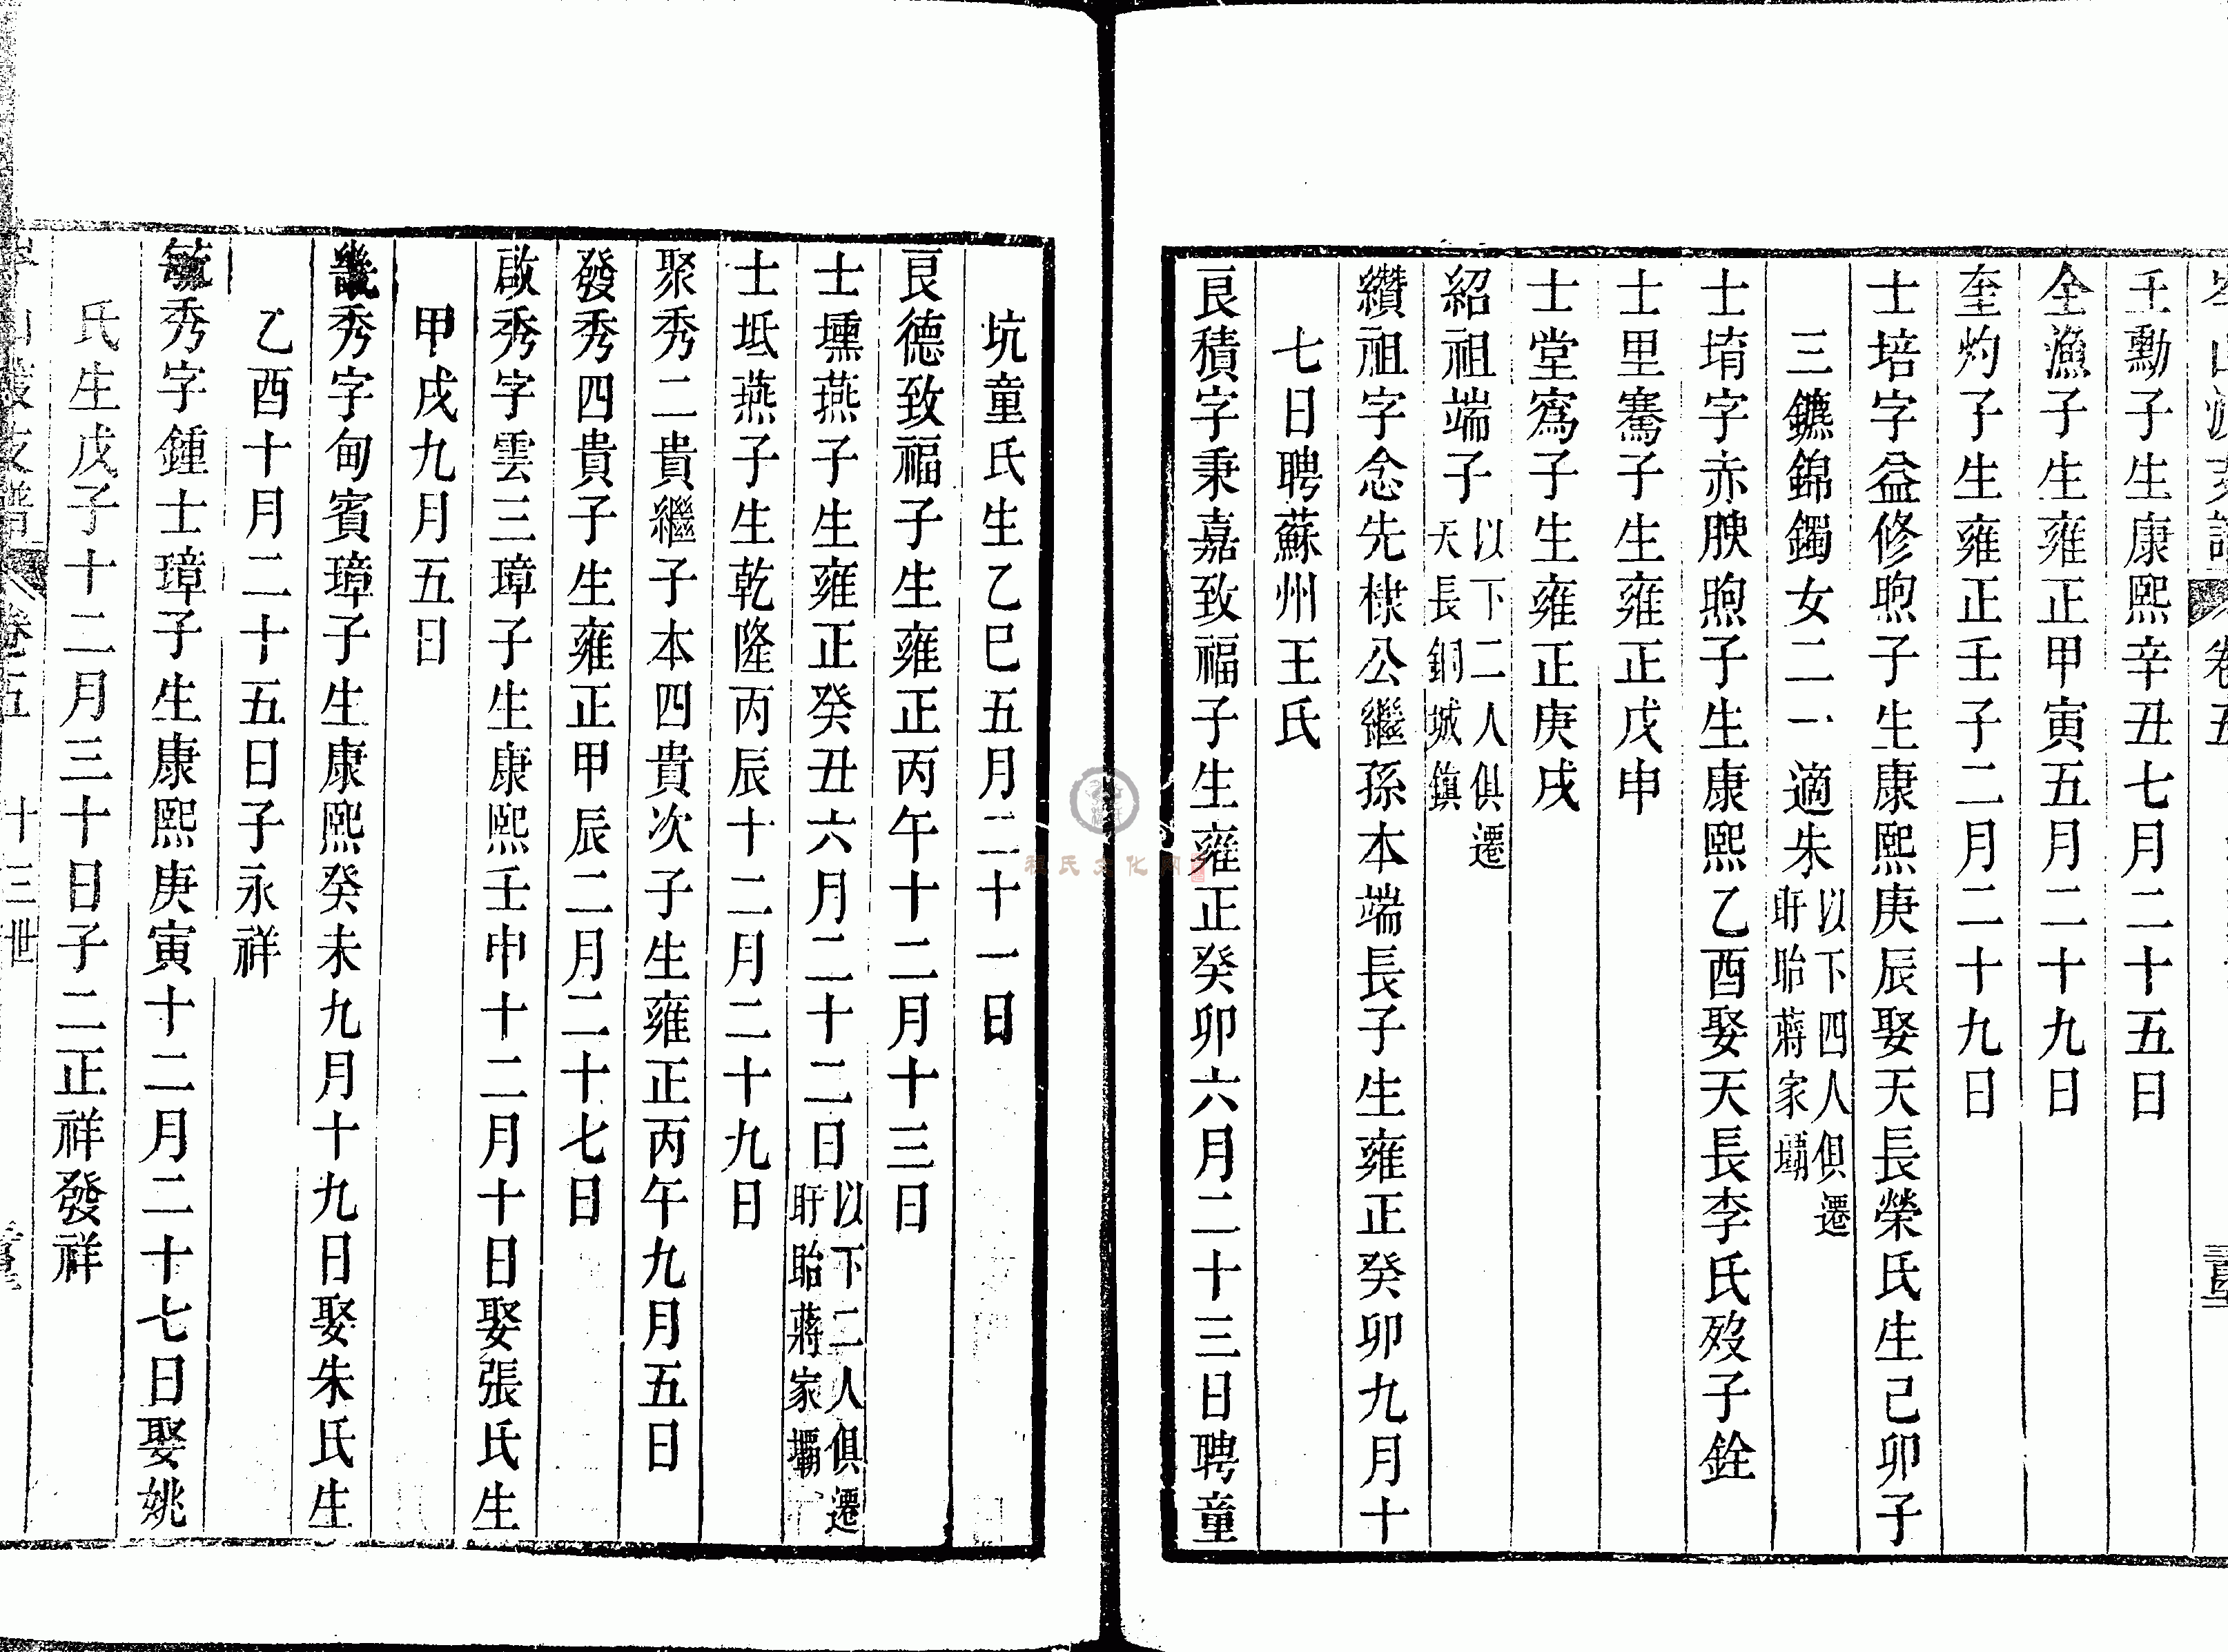 卷五
壬勳子生康熙辛丑七月二十五日
全漁子生雍正甲寅五月二十九日
奎灼子生雍正壬子二月二十九日
士培字益修煦子生康熙庚辰娶天長榮氏生己卯子
三鑣錦鐲女二一適朱以下四人俱遷盱眙蔣家壩
士堉字赤腴煦子生康熙乙酉娶天長李氏歿子銓
士里騫子生雍正戊申
士堂騫子生雍正庚戌
紹祖端子以下二人俱遷天長銅城鎮
纘祖字念先棣公繼孫本端長子生雍正癸卯九月十
七日聘蘇州王氏
艮積字秉嘉致福子生雍正癸卯六月二十三日聘童
坑童氏生乙巳五月二十一日
艮德致福子生雍正丙午十二月十三日
士壎燕子生雍正癸丑六月二十二日以下二人俱遷盱眙蔣家壩
士坻燕子生乾隆丙辰十二月二十九日
聚秀二貴繼子本四貴次子生雍正丙午九月五日
發秀四貴子生雍正甲辰二月二十七日
啟秀字雲三璋子生康熙壬申十二月十日娶張氏生
甲戌九月五日
畿秀字甸賓璋子生康熙癸未九月十九日娶朱氏生
乙酉十月二十五日子永祥
毓秀字鍾士璋子生康熙庚寅十二月二十七日娶姚
氏生戊子十二月三十日子二正祥發祥
支譜 卷五 十三世